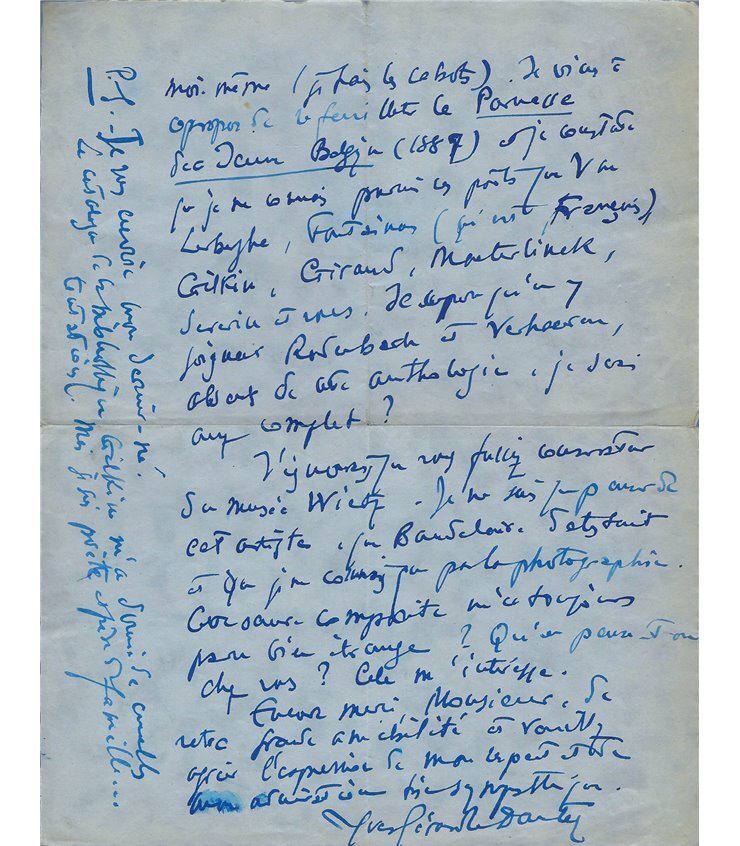 moi-même (je hais les cabots). Je viens à
propos de refeuilleter le Parnasse
de la Jeune Belgique (1887) et je constate
que je ne connais parmi ces poëts que Van
Lerberghe, Fontainas (qui est français),
Gilkin, Giraud, Maeterlinck,
Severin et vous. Je suppose qu'en y
joignant Rodenbach et Verhaeren,
absent de cette anthologie, je serai
complet ?
J'ignorais que vous fussiez conservateur
du musée Wiertz. Je ne sais que penser de
cet artiste, que Baudelaire détestait
et que je ne connais que par la photographie.
Son œuvre composite m'a toujours
paru bien étrange ? Qu'en pense-t-on
chez vous ? Cela m'intéresse.
Encore merci, Monsieur, de
votre grande amabilité et veuillez
agréer l'expression de mon respect et de
mon admiration très sympathique.
Yves Gérard Le Dantec
P.S. Je vous envoie mon dernier-né.
Le catalogue de la bibliothèque Gilkin m'a donné de cruelles
tentations. Mais je suis poète et père de famille...